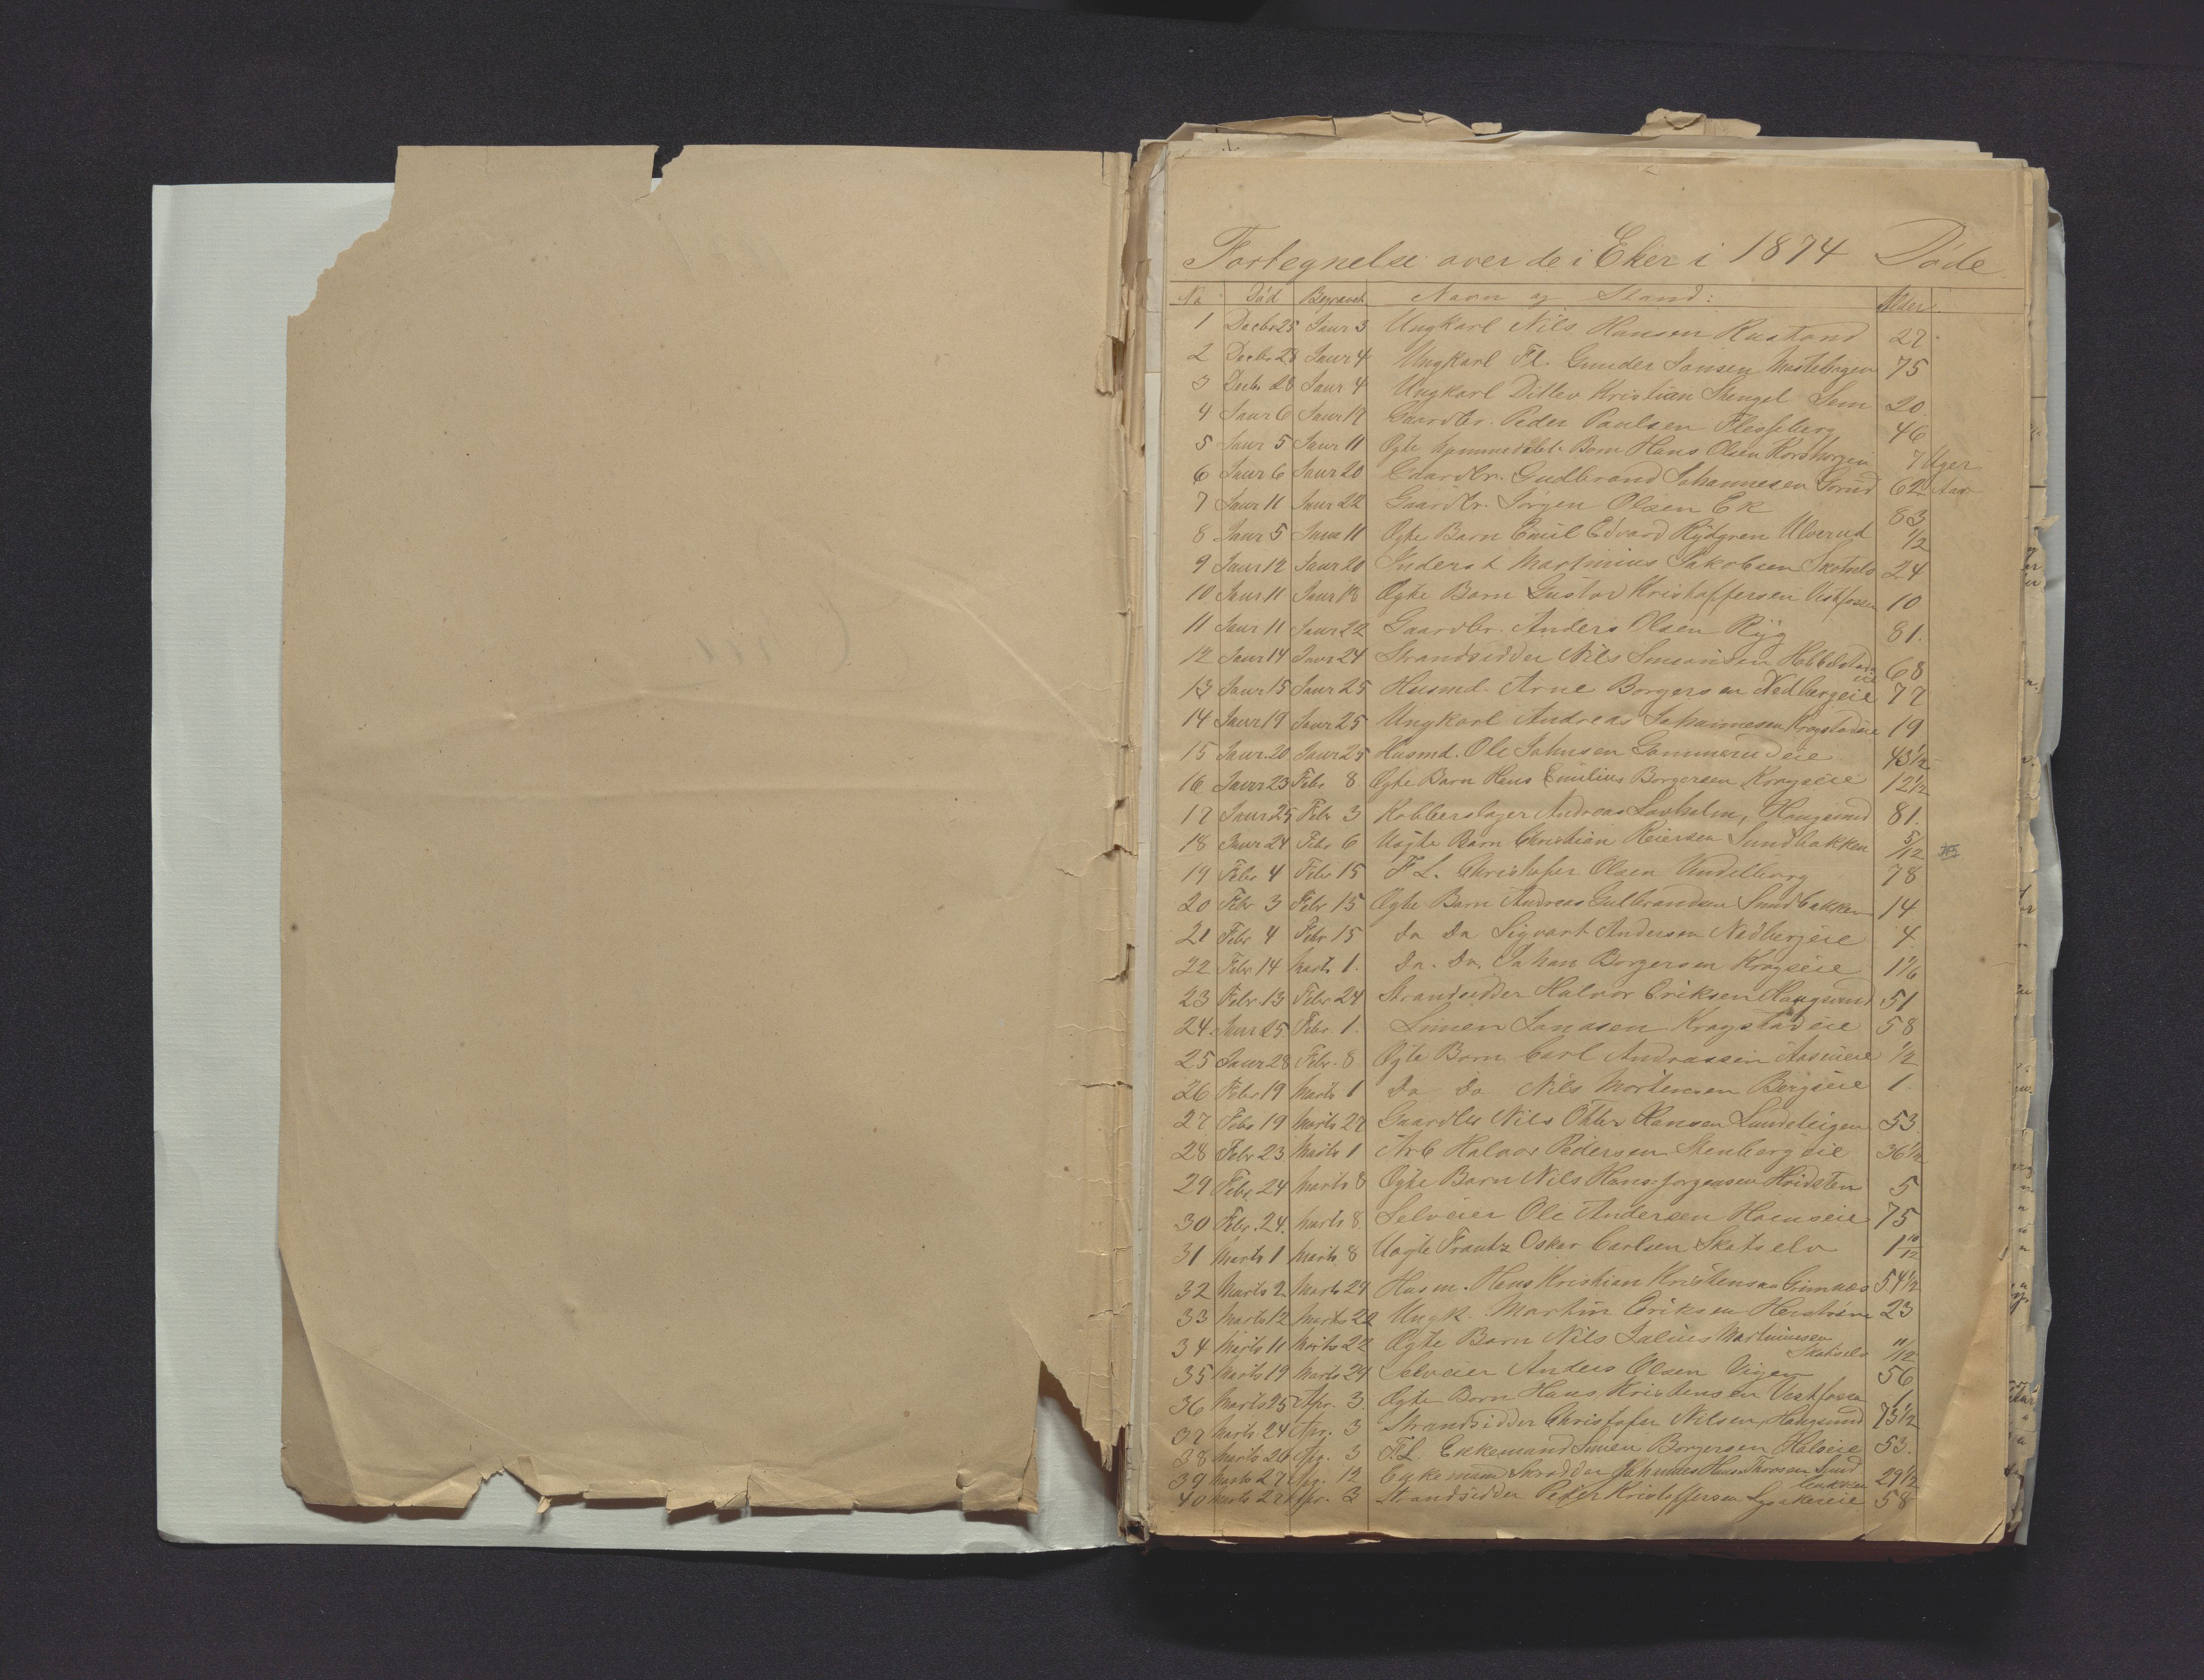 Fortegnelse over de i Eker i 1874 Døde
No Død Begravet Navn og Stand: Alder.
1 Decbr 25 Janr 3 Ungkarl Nils Hansen Rustand 27
2 Decbr 28 Janr 4 Ungkarl Fl. Gunder Jansen 75
3 Decbr 28 Janr 4 Ungkarl Ditlev Kristian Stengel Sem 20
4 Janr 6 Janr 17 Gaardbr. Peder Paulsen Flesseberg 46
5 Janr 5 Janr 11 Ægte Barn Hans Olsen 7 Uger
6 Janr 6 Janr 20 Gaardbr. Gudbrand Johannesen 62 Aar
7 Janr 11 Janr 22 Gaardbr. Jørgen Olsen Ek 83
8 Janr 5 Janr 11 Ægte Barn Emil Edvard Rydgren Ulverud 1/2
9 Janr 12 Janr 20 Inderst Martinius Jakobsen Skotselv 24
10 Janr 11 Janr 18 Ægte Barn Gustav Kristoffersen Vestfossen 10
11 Janr 11 Janr 22 Gaardbr. Anders Olsen Ryg 81.
12 Janr 14 Janr 24 Strandsidder Nils Simonsen Hobbelstad
eie 68
13 Janr 15 Janr 25 Husmd. Arne Borgersen Nedbergeie 77
14 Janr 19 Janr 25 Ungkarl Andreas Johannesen Kragstadeie 19
15 Janr 20 Janr 25 Husmd. Ole Johnsen Gommerudeie 43 1/2
16 Janr 23 Febr 8 Ægte Barn Hans Emilius Borgersen Kragseie 12 1/2
17 Janr 25 Febr 3 Kobberslager Andreas Løvholm, Hougsund 81.
18 Janr 24 Febr 6 Uægte Barn Christian Reiersen Sundbakken 5/12
19 Febr 4 Febr 15 F L. Christofer Olsen 78
20 Febr 3 Febr 15 Ægte Barn Andreas Gulbrandsen Sundbakken 14
21 Febr 4 Febr 15 Do Do Sigvart Andersen Nedbergeie 4
22 Febr 14 Marts 1. Do. Do. Johan Borgersen Kragseie 1 1/6
23 Febr. 13 Febr 24 Strandsidder Halvor Eriksen Hougsund 51
24. Janr 25 Febr. 1. Simen Jonasen Kragstadeie 58
25 Janr 28 Febr. 8 Ægte Barn Carl Andreassen 1/2
26 Febr 19 Marts 1 Do Do Nils Mortensen Bergseie 1.
27 Febr 19 Marts 27 Gaardbr Nils Otter Hansen Lundeteigen 53.
28 Febr 23. Marts 1 Arb Halvor Pedersen Stenbergeie 36 1/2
29 Febr. 24 Marts 8 Ægte Barn Nils Hans Jørgensen Hvidsten 5
30 Febr. 24. Marts 8. Selveier Ole Andersen 75
31 Marts 1 Marts 8 Uægte Frantz Oskar Carlsen Skotselv 1 10/12
32 Marts 2 Marts 24 Husm. Hans Kristian Kristensen 54 1/2
33 Marts 12 Marts 22 Ungk. Martin Eriksen 23
34 Marts 11 Marts 22 Ægte Barn Nils Julius Martiniussen
Skotselv 11/12
35 Marts 19 Marts 24 Selveier Anders Olsen 56
36 Marts 25 Apr. 3. Ægte Barn Hans Kristensen Vestfossen 1
37 Marts 24 Apr. 3 Strandsidder Christofer Nilsen, Hougsund 73 1/2
38 Marts 26 Apr. 3 F.L. Enkemand Simen Borgersen 53.
39 Marts 27 Apr. 12 Enkemand Skrædder Johannes Hans Thorsen Sund
bakken 29 1/2
40 Marts 27 Apr. 3 Strandsidder Peder Kristoffersen 58